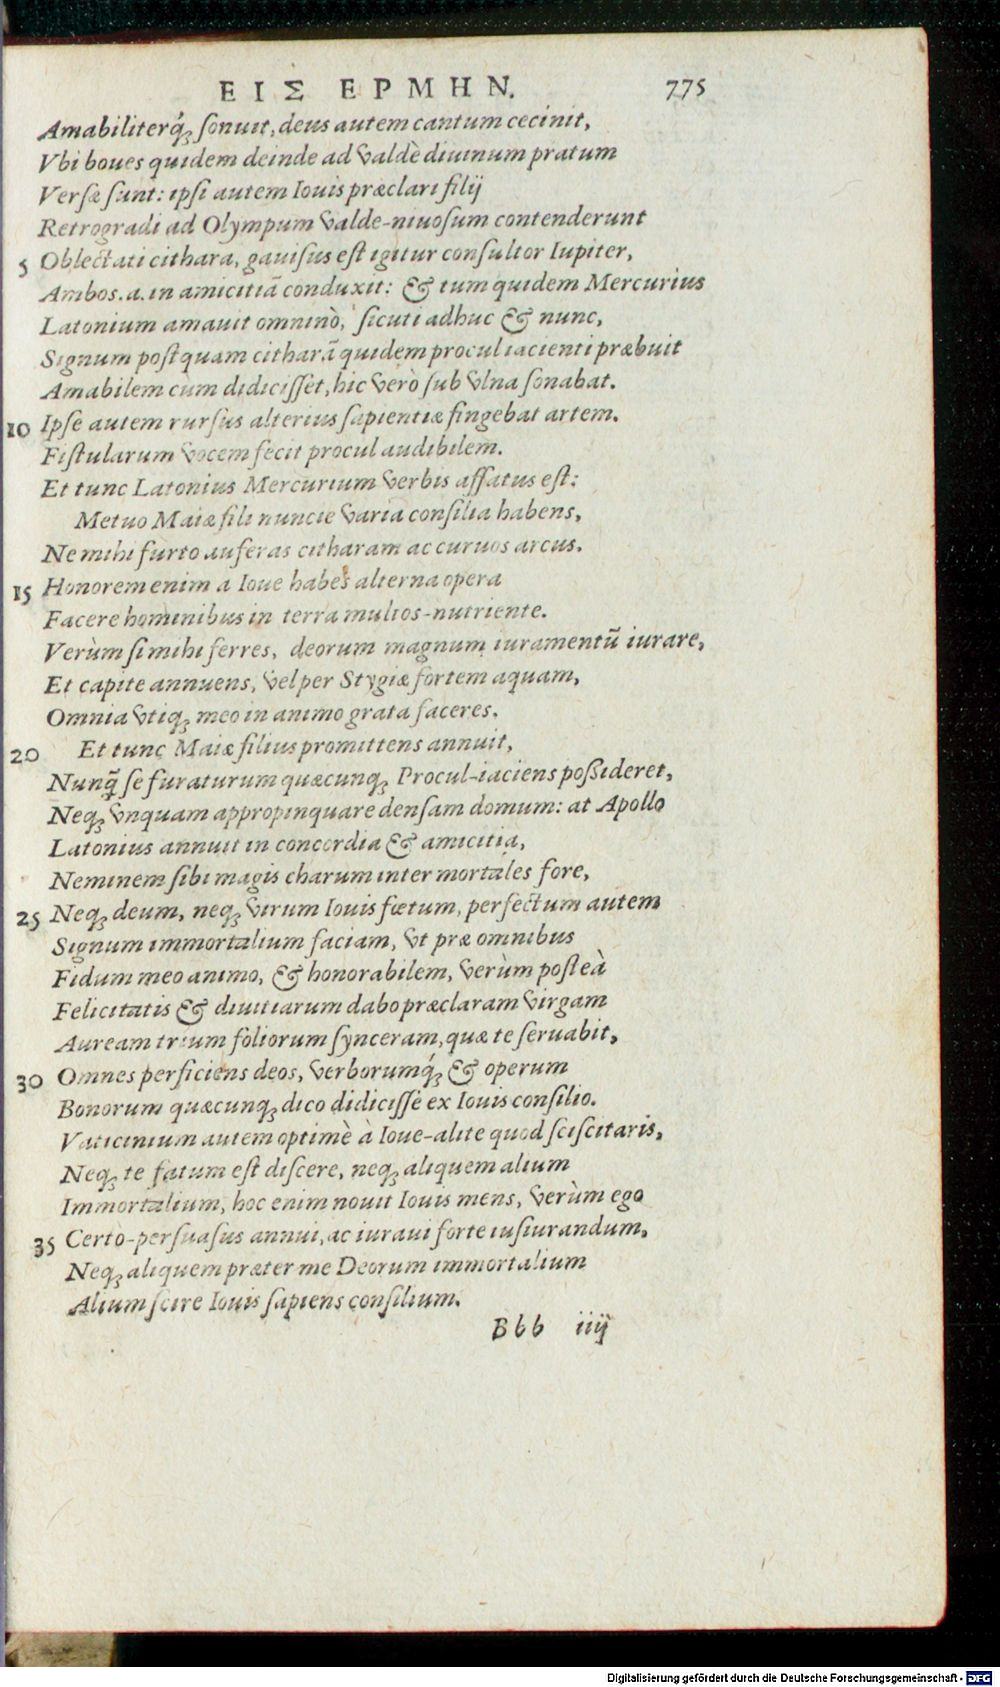 ΕΙΣ ΕΡΜΗΝ. 775
Amabiliterq́ꝫ ſonuit, deus autem cantum cecinit,
Vbi boues quidem deinde ad valdè diuinum pratum
Verſæ ſunt: ipſi autem Iouis præclari filij
Retrogradi ad Olympum valde-niuoſum contenderunt
5 Oblectati cithara, gauiſus eſt igitur conſultor Iupiter,
Ambos .a. in amicitiā conduxit: & tum quidem Mercurius
Latonium amauit omninò, ſicuti adhuc & nunc,
Signum poſtquam citharā quidem procul iacienti præbuit
Amabilem cùm didiciſſet, hic verò ſub vlna ſonabat.
10 Ipſe autem rurſus alterius ſapientiæ fingebat artem.
Fiſtularum vocem fecit procul audibilem.
Et tunc Latonius Mercurium verbis affatus eſt:
Metuo Maiæ fili nuncie varia conſilia habens,
Ne mihi furto auferas citharam ac curuos arcus.
15 Honorem enim a Ioue habes alterna opera
Facere hominibus in terra multos-nutriente.
Verùm ſi mihi ferres, deorum magnum iuramentū iurare,
Et capite annuens, vel per Stygiæ fortem aquam,
Omnia vtiqꝫ meo in animo grata faceres.
20 Et tunc Maiæ filius promittens annuit,
Nunq̃ ſe furaturum quæcunqꝫ Procul-iaciens poſſideret,
Neqꝫ vnquam appropinquare denſam domum: at Apollo
Latonius annuit in concordia & amicitia,
Neminem ſibi magis charum inter mortales fore,
25 Neqꝫ deum, neqꝫ virum Iouis fœtum, perfectum autem
Signum immortalium faciam, vt præ omnibus
Fidum meo animo, & honorabilem, verùm poſteà
Felicitatis & diuitiarum dabo præclaram virgam
Auream trium foliorum ſynceram, quæ te ſeruabit,
30 Omnes perficiens deos, verborumq́ꝫ & operum
Bonorum quæcunqꝫ dico didiciſſe ex Iouis conſilio.
Vaticinium autem optimè à Ioue-alite quod ſciſcitaris,
Neqꝫ te fatum eſt diſcere, neqꝫ aliquem alium
Immortalium, hoc enim nouit Iouis mens, verùm ego
35 Certò-perſuaſus annui, ac iuraui forte iuſiurandum,
Neqꝫ aliquem præter me Deorum immortalium
Alium ſcire Iouis ſapiens conſilium.
Bbb iiij
Digitalisierung gefördert durch die Deutsche Forschungsgemeinschaft - DFG